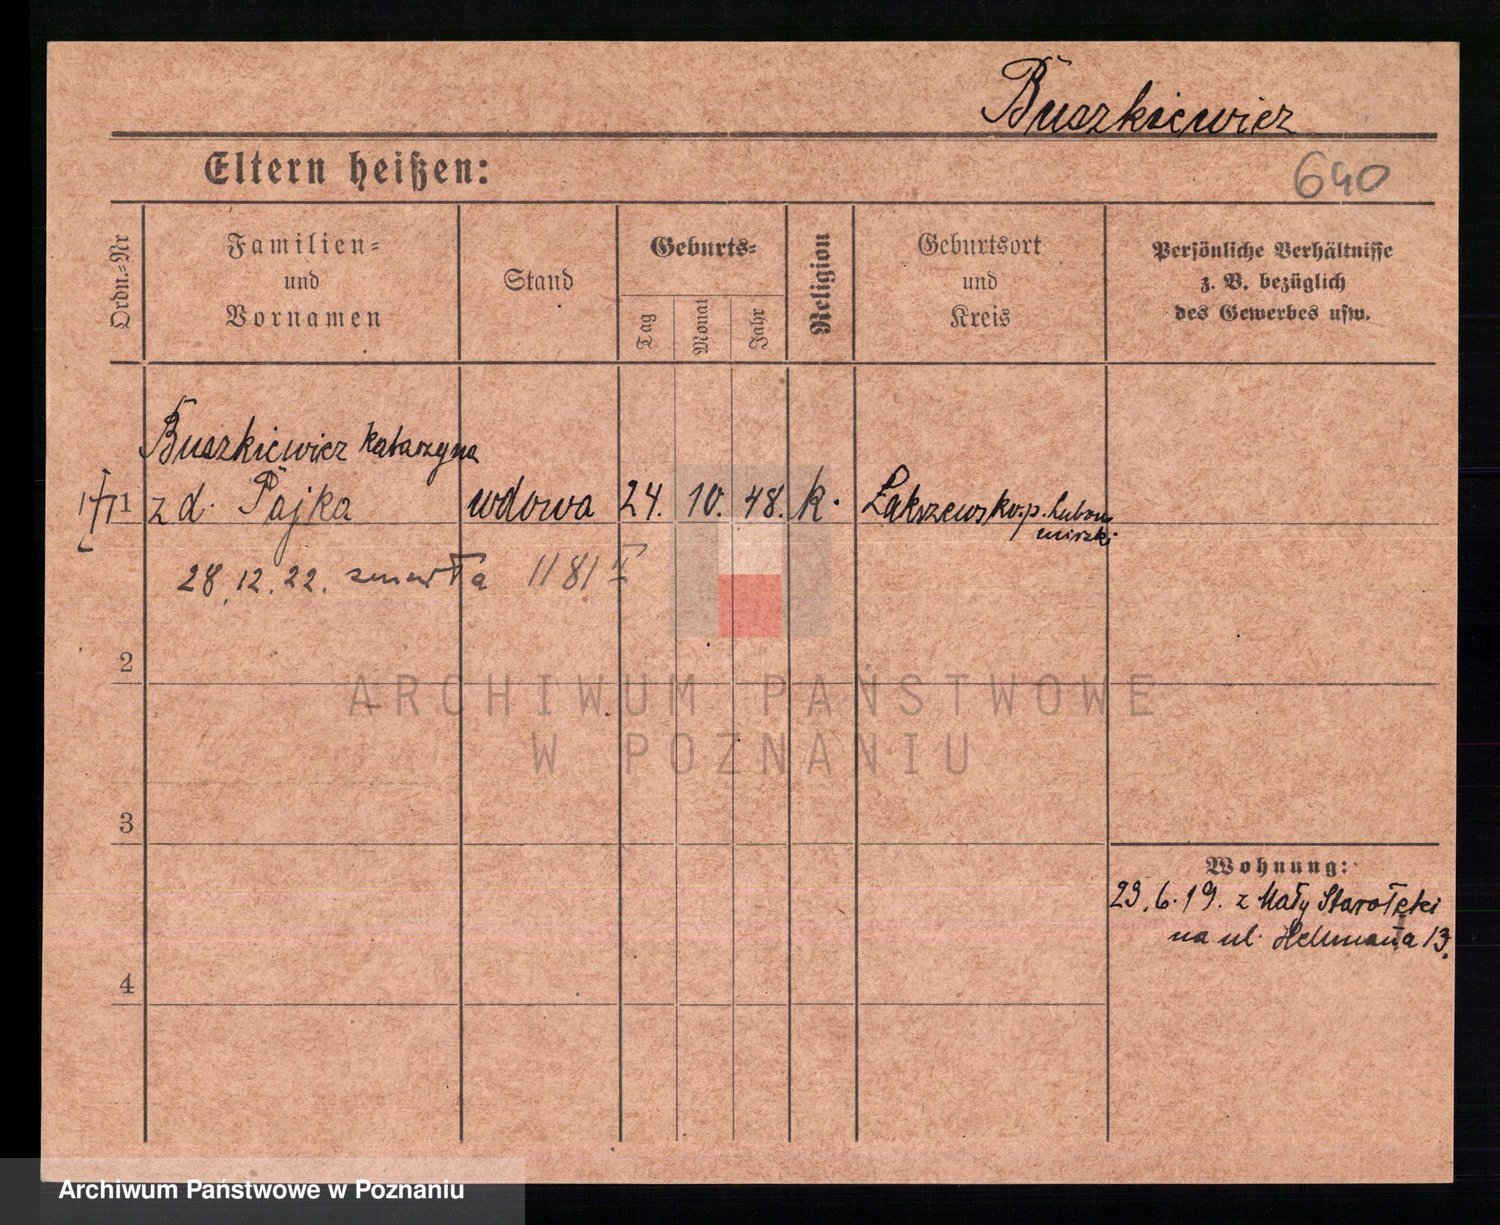 Buszkiewicz
Eltern heißen:
640
Ordn.=Nr
Familien=
und
Vornamen
Stand
Geburts=
Tag
Monat
Jahr
Religion
Geburtsort
und
Kreis
Persönliche Verhältnisse
z. B. bezüglich
des Gewerbes usw.
Buszkiewicz Katarzyna
1 z d. Pajka wdowa 24. 10. 48. k.
28.12.22. zmarła 1181
2
ARCHIWUM PAŃSTWOWE
W POZNANIU
3
Wohnung:
23.6.19. z Mały Starołęki
na ul. Hellmana 13.
4
Archiwum Państwowe w Poznaniu